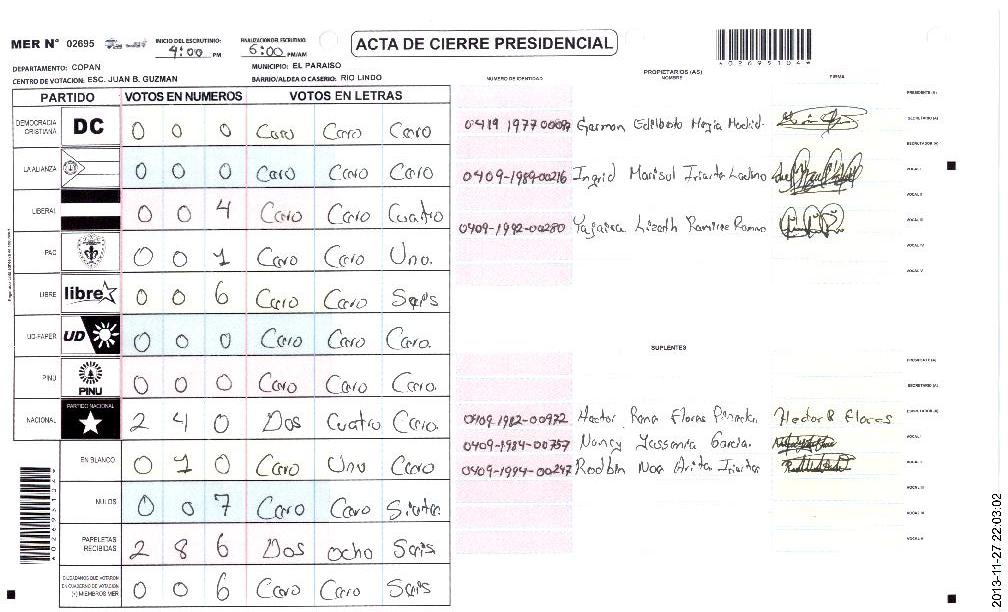 MER Nº 02695 INICIO DEL ESCRUTINIO: 4:00 PM FINALIZACION DEL ESCRUTINIO: 6:00 PM/AM ACTA DE CIERRE PRESIDENCIAL
DEPARTAMENTO: COPAN MUNICIPIO: EL PARAISO
CENTRO DE VOTACION: ESC. JUAN B. GUZMAN BARRIO/ALDEA O CASERIO: RIO LINDO
NUMERO DE IDENTIDAD PROPIETARIOS (AS) NOMBRE FIRMA
PARTIDO VOTOS EN NUMEROS VOTOS EN LETRAS
DEMOCRACIA CRISTIANA DC 0 0 0 Cero Cero Cero
LA ALIANZA 0 0 0 Cero Cero Cero
LIBERAL 0 0 4 Cero Cero Cuatro
PAC 0 0 1 Cero Cero Uno.
LIBRE libre 0 0 6 Cero Cero Seis
UD-FAPER UD 0 0 0 Cero Cero Cero.
PINU PINU 0 0 0 Cero Cero Cero.
NACIONAL PARTIDO NACIONAL 2 4 0 Dos Cuatro Cero.
EN BLANCO 0 1 0 Cero Uno Cero
NULOS 0 0 7 Cero Cero Siete.
PAPELETAS RECIBIDAS 2 8 6 Dos ocho Seis
CIUDADANOS QUE VOTARON EN CUADERNO DE VOTACION (+) MIEMBROS MER 0 0 6 Cero Cero Seis
PRESIDENTE (A)
German Edilberto Mejia Madrid. SECRETARIO (A)
ESCRUTADOR (A)
0409-1989-00216 Ingrid Marisol Iriarte VOCAL I
VOCAL II
0409-1992-00280 Lizeth Ramirez VOCAL III
VOCAL IV
VOCAL V
SUPLENTES
PRESIDENTE (A)
SECRETARIO (A)
0409-1982-00972 Hector Rene Flores Hector R Flores ESCRUTADOR (A)
0409-1984-00757 Nancy Yessenia Garcia. VOCAL I
0409-1994-00247 Noe Iriarte VOCAL II
VOCAL III
VOCAL IV
VOCAL V
2013-11-27 22:03:02